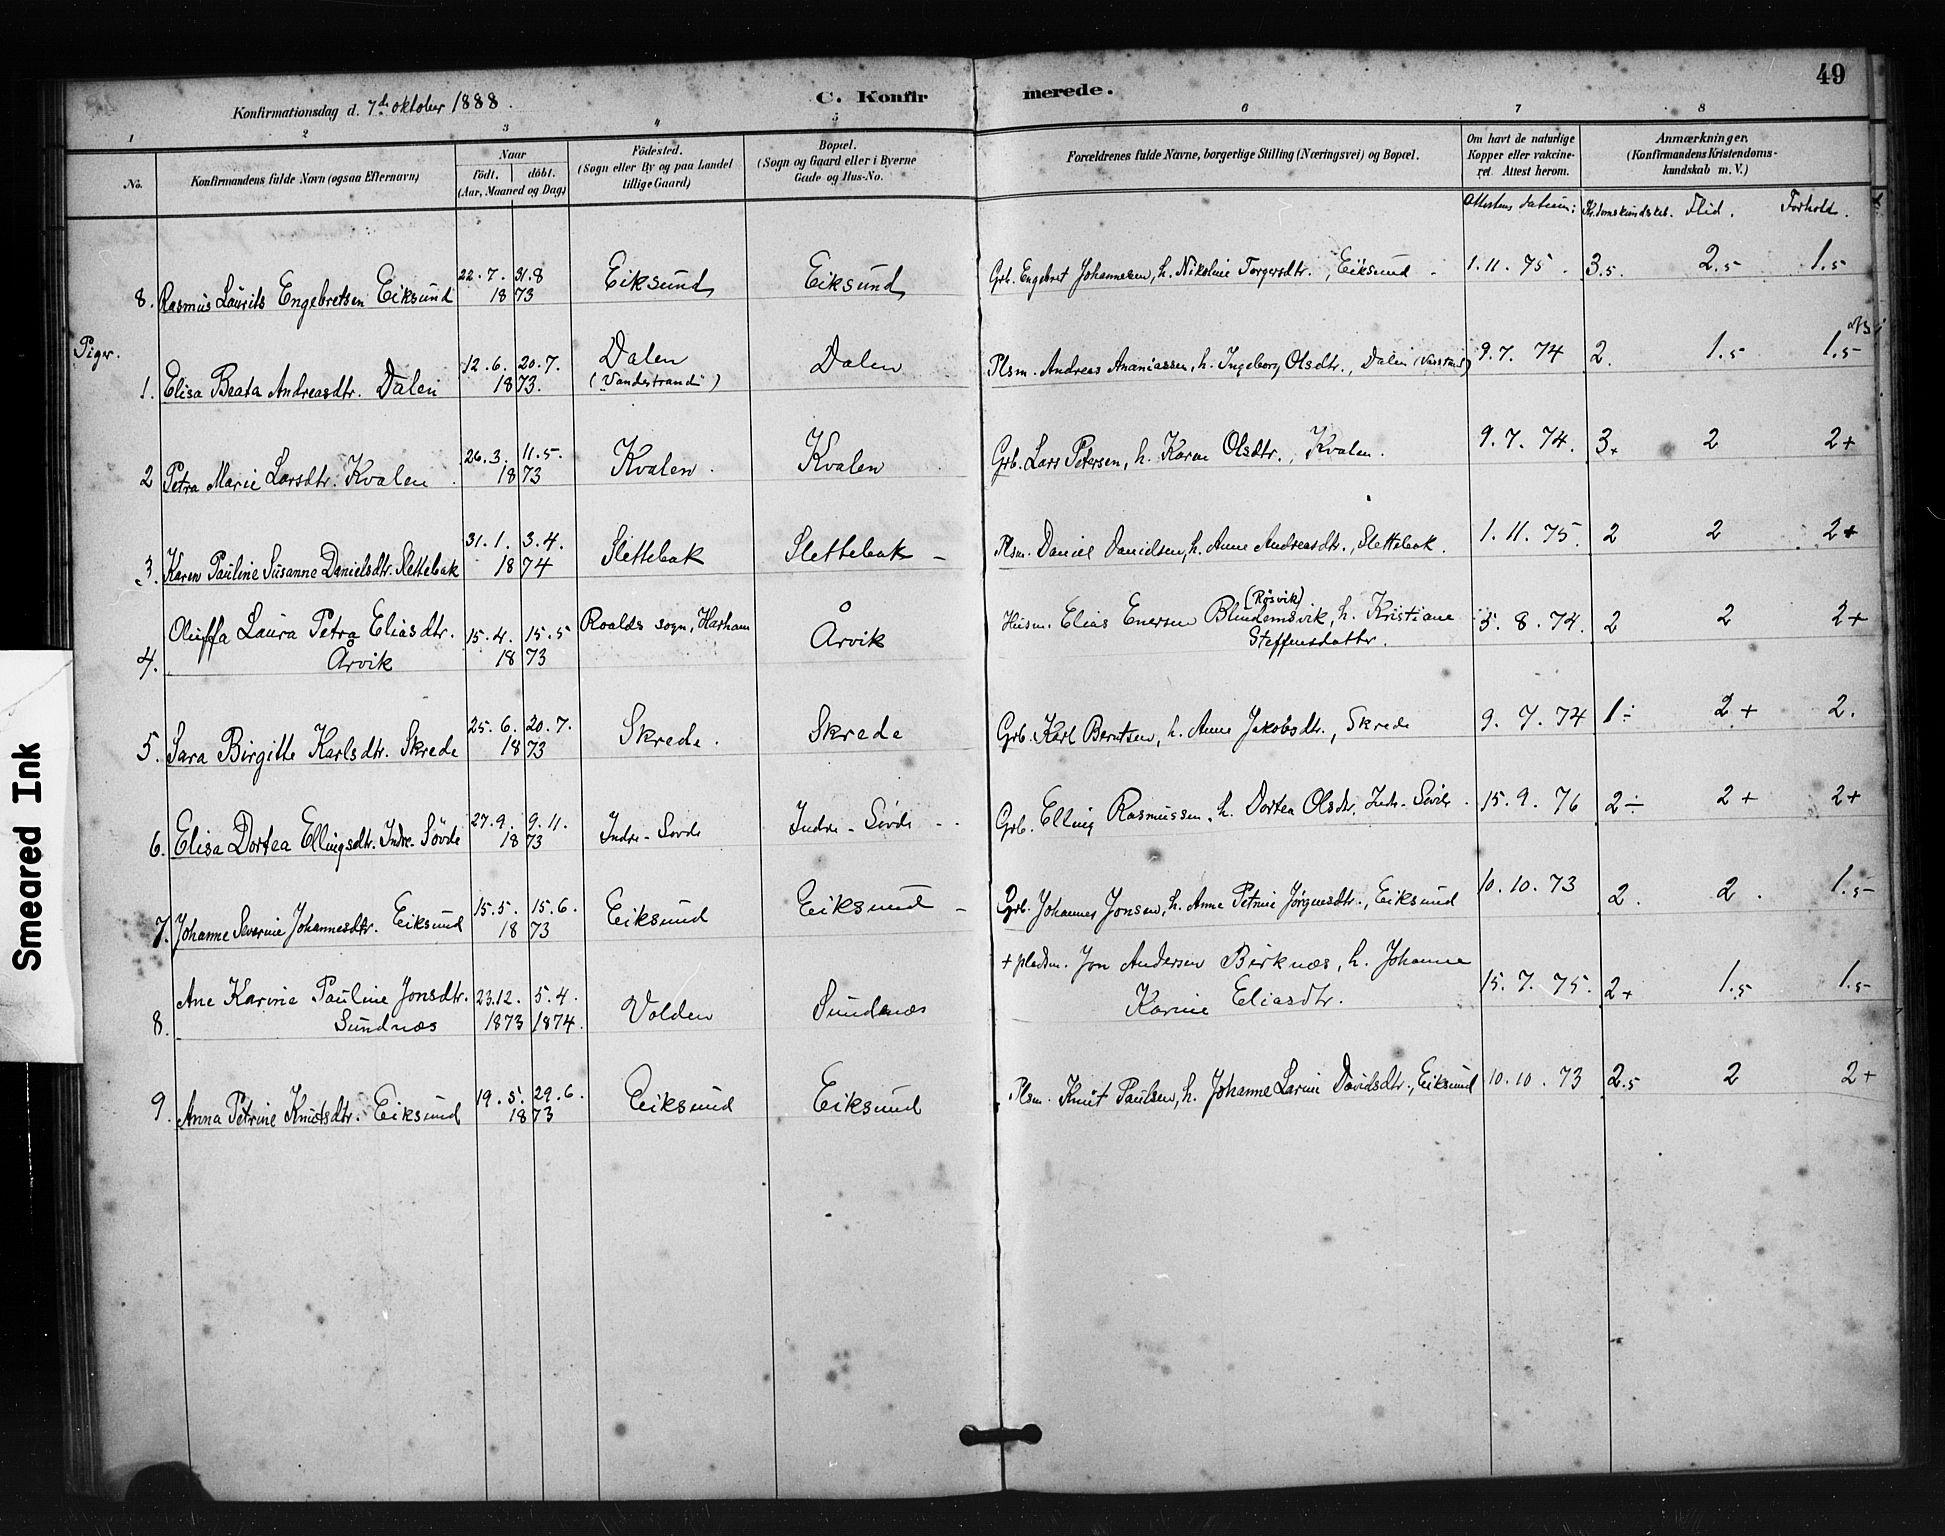 49
Konfirmationsdag d. 7de oktober 1888.
C. Konfir merede.
1 2 3 4 5 6 7 8
No.
Konfirmandens fulde Navn (ogsaa Efternavn)
Naar
födt. döbt.
(Aar, Maaned og Dag)
Födested.
(Sogn eller By og paa Landet
tillige Gaard)
Bopæl.
(Sogn og Gaard eller i Byerne
Gade og Hus-No.
Forældrenes fulde Navne, borgerlige Stilling (Næringsvei) og Bopæl.
Om havt de naturlige
Kopper eller vakcine-
ret. Attest herom.
Anmærkninger.
(Konfirmandens Kristendoms-
kundskab m. V.)
Attestens datum: Kr.domskundskab. Flid. Forhold.
22.7. 31.8
8. Rasmus Laurits Engebretsen Eiksund 1873 Eiksund Eiksund Grb. Engebret Johannesen, h. Nikoline Torgersdtr., Eiksund 1.11.75. 3.5. 2.5 1.5
Piger.
12.6. 20.7. Dalen
1. Elisa Beata Andreasdtr. Dalen 1873. (Vandestranda) Dalen Plsm. Andreas Ananiassen, h. Ingeborg Olsdtr., Dalen 9.7.74 2. 1.5 1.5
26.3. 11.5.
2 Petra Marie Larsdtr. Kvalen 1873 Kvalen. Kvalen Grb. Lars Petersen, h. Karen Olsdtr., Kvalen. 9.7.74. 3+ 2 2+
31.1. 3.4.
3. Karen Pauline Susanne Danielsdtr. Slettebak 1874 Slettebak Slettebak Plsm. Daniel Danielsen, h. Anne Andreasdtr., Slettebak. 1.11.75. 2 2 2+
(Røsvik)
Oluffa Laura Petra Eliasdtr. 15.4. 15.5 Roalds sogn, Harham Årvik Husm. Elias Enersen Blindemsvik, h. Kristiane 5.8.74. 2 2 2+
4. Årvik 1873 Steffensdatter.
25.6. 20.7.
5. Sara Birgitte Karlsdtr. Skrede 1873 Skrede. Skrede Grb. Karl Berntsen, h. Anne Jakobsdtr., Skrede 9.7.74 1÷ 2+ 2.
27.9. 9.11.
6. Elisa Dortea Ellingsdtr. Indre-Søvde 1873 Indre-Søvde Indre-Søvde Grb. Elling Rasmussen, h. Dortea Olsdtr. Indr-Søvde. 15.9.76 2÷ 2+ 2+
15.5. 15.6.
7. Johanne Severine Johannesdtr. Eiksund 1873 Eiksund Eiksund Grb. Johannes Jonsen, h. Anne Petrine Jørgensdtr., Eiksund 10.10.73 2. 2. 1.5
Ane Karine Pauline Jonsdtr. 23.12. 5.4. Volden Sundnæs + pladsm. Jon Andersen Birknæs, h. Johanne 15.7.75. 2+ 1.5 1.5
8. Sundnæs 1873 1874. Karine Eliasdtr.
19.5. 29.6.
9. Anna Petrine Knutsdtr. Eiksund 1873 Eiksund Eiksund Plsm. Knut Paulsen, h. Johanne Larine Davidsdtr., Eiksund 10.10.73 2.5 2 2+
Smeared Ink